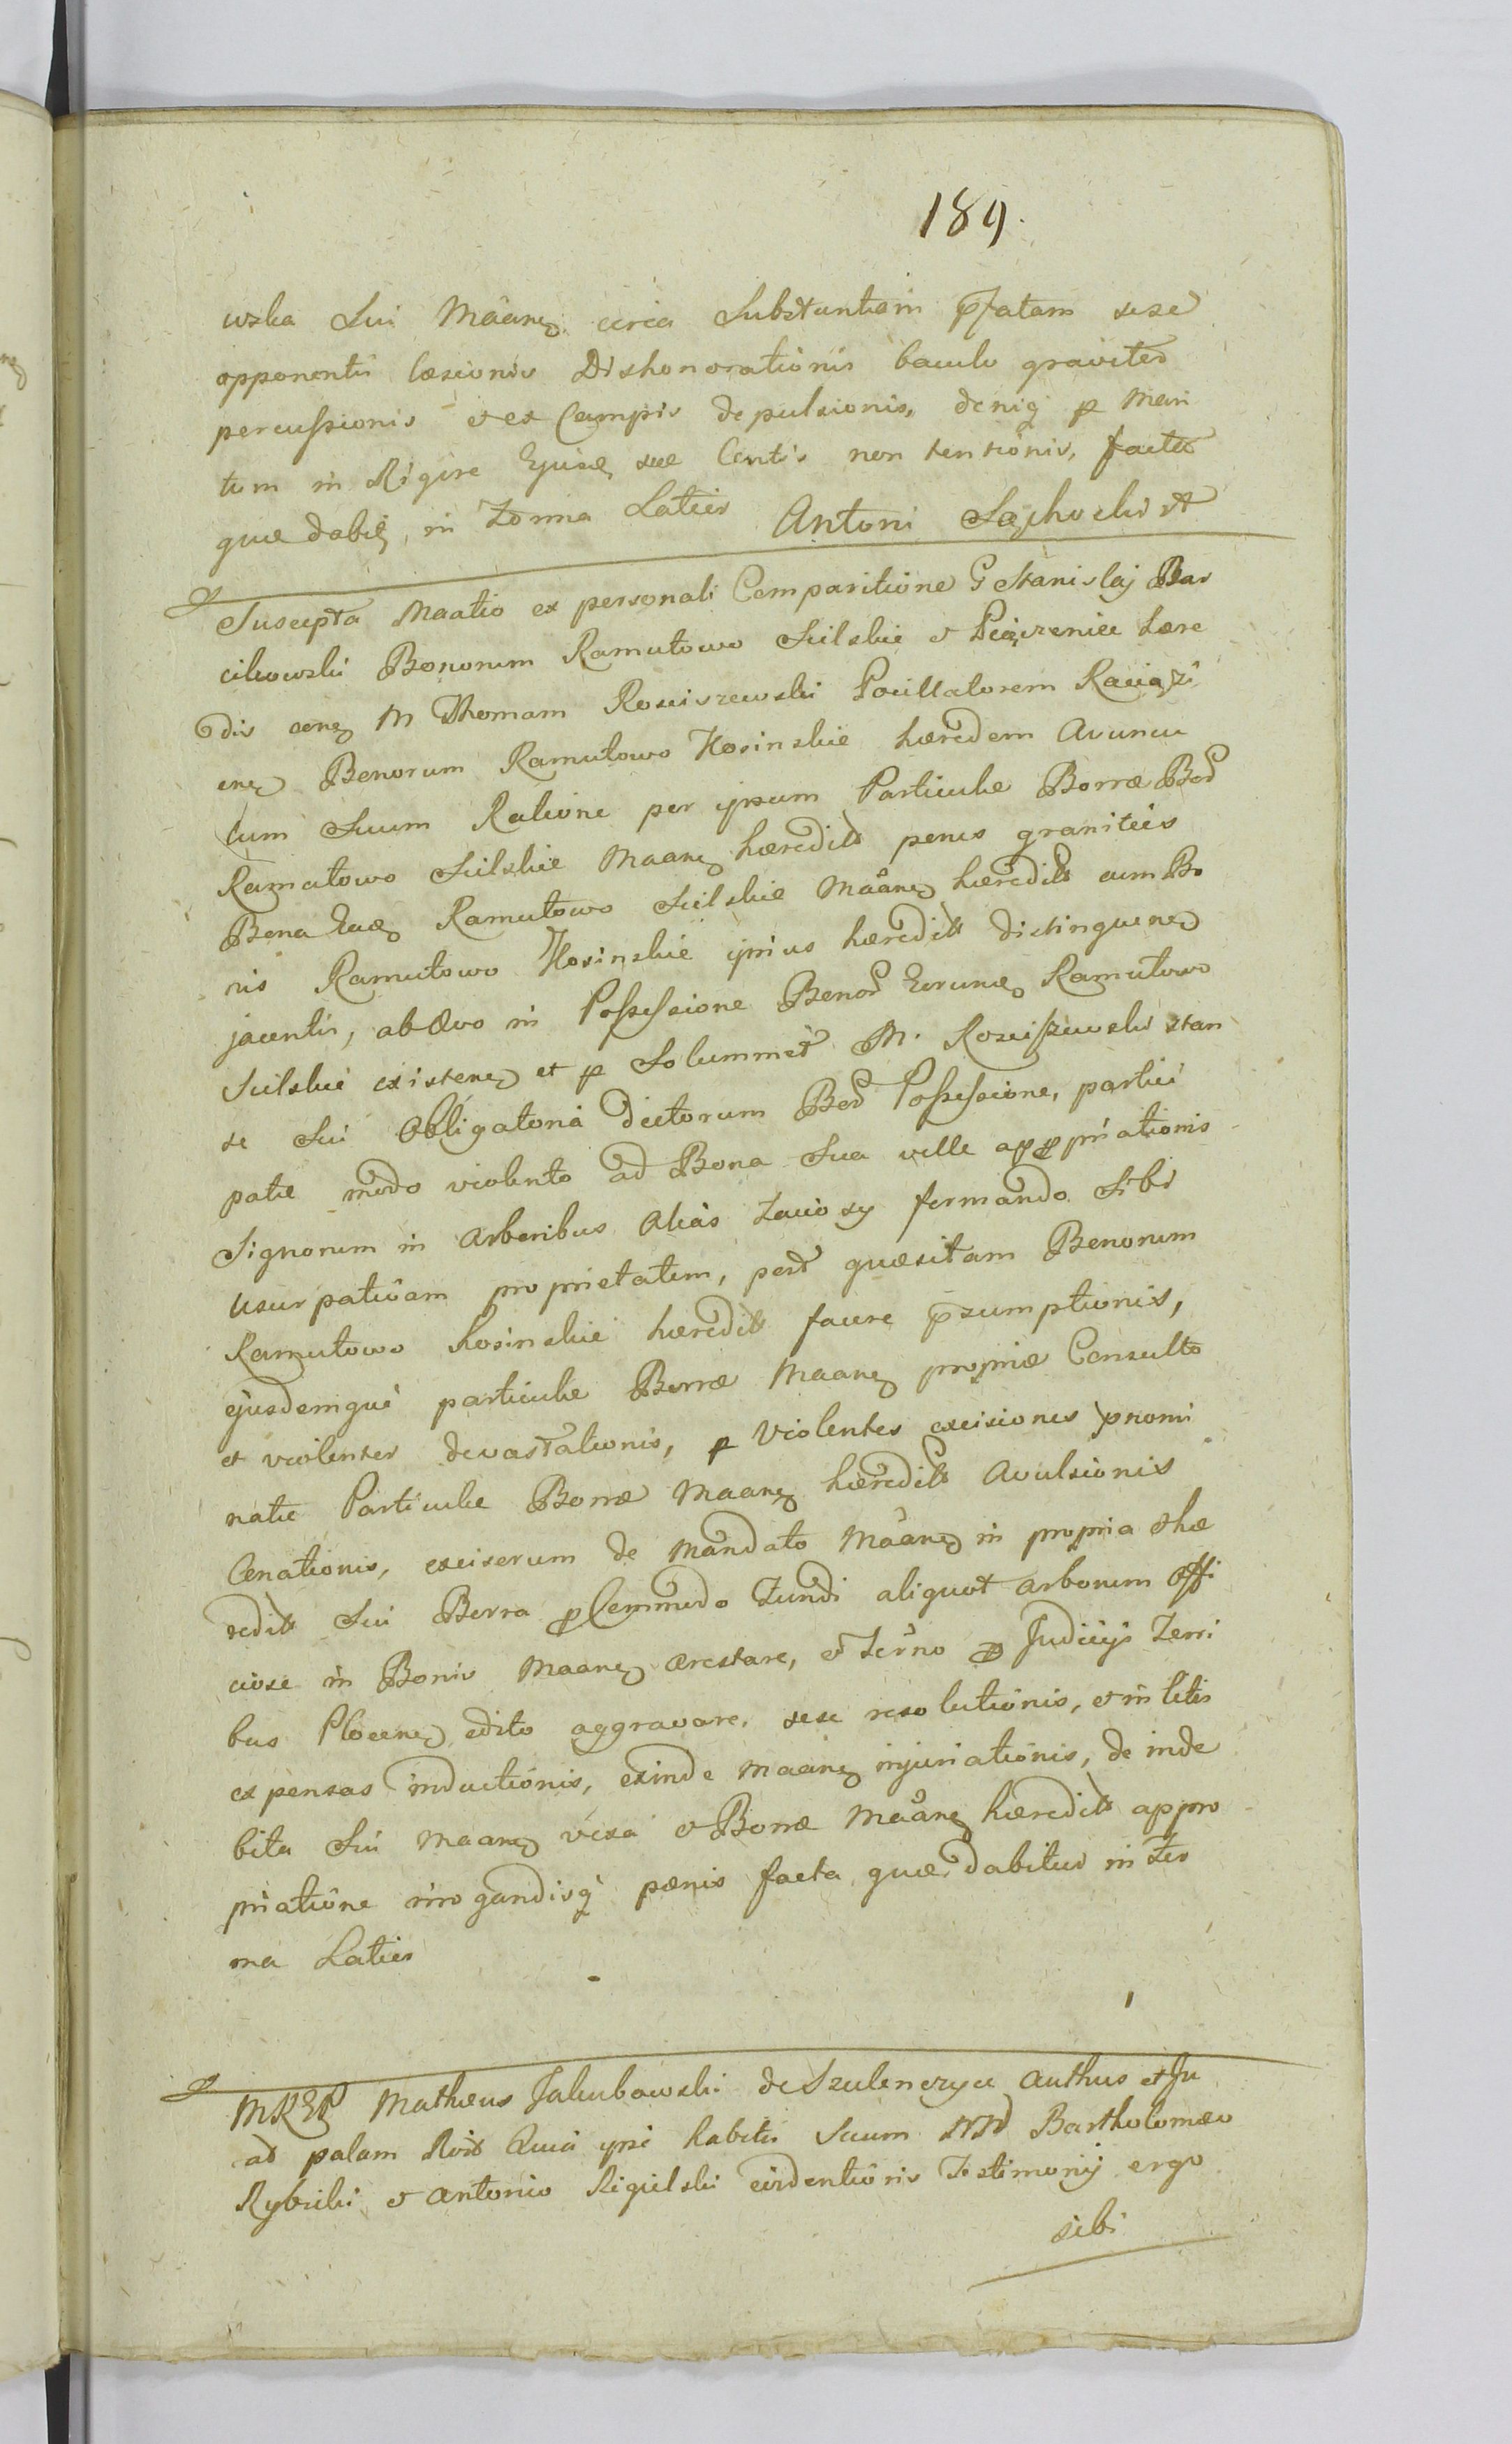 189.
wska Sui Maanꝫ circa Substantiam p̄fatam sese
opponentis læsionis Dishonorationis baculo graviter
percussionis et ex Campis depulsionis, deniq̨ p Mari
tum in Rigore Ejusd sue Centis non tentionis, facta
quæ dabit, in Forma Latior Antoni
Suscepta Maatio ex personali Comparitione G Stanislaj Bar
cikowski Bonorum Ramutowo Sulskie et hære
dis conꝫ M Thomam Rosciszewski Pocillatorem Raciązi
enꝫ Bonorum Ramutowo Kosinskie hæredem Avuncu
lum Suum Ratione per ipsum Particulæ Borræ Bod
Ramutowo Sulskie Maanꝫ hæredits penes granities
Bona Ramutowo Sulskie Maanꝫ hæredits cum Bo
nis Ramutowo Kosinskie ipsius hæredits distinguenꝫ
jacentis, ab ævo in Possessione Bonor Ramutowo
Sulskie existenꝫ et p Solummet M. Rosciszewski stan
te Sui Obligatoria dictorum Bod Possessione, partici
patæ modo violento ad Bona Sua velle appropriationis
Signorum in Arboribus Alias formando Sibi
Usurpativam proprietatem, post quæsitam Bonorum
Ramutowo Kosinskie hæredits facere p̄sumptionis,
ejusdemque particulæ Borræ Maanꝫ propriæ Consulto
et violenter devastationis, p Violentes excisiones p̄nomi
natæ Particulæ Borræ Maanꝫ hæredits Avulsionis
Conationis, excisorum de mandato Maanꝫ in propria hæ
redits Sui Borra p Commodo Fundi aliquot arborum Offi
ciose in Bonis Maanꝫ arestare, et Terno p Judicijs Terri
bus Plocenꝫ edito aggravare, sese resolutionis, et in litis
expensas inductionis, exinde Maanꝫ injuriationis, de inde
bita Sui Maanꝫ vexa et Borræ Maanꝫ hæredits appro
priatione irrogandisq̨ pænis facta quæ dabitur in For
ma Latior
Mathæus Jakubowski de Authus et Ju
ad palam Quia ipse habitis Secum NN Bartholomæo
Rybicki et Antonio Rigielski evidentioris Testimonij ergo
sibi